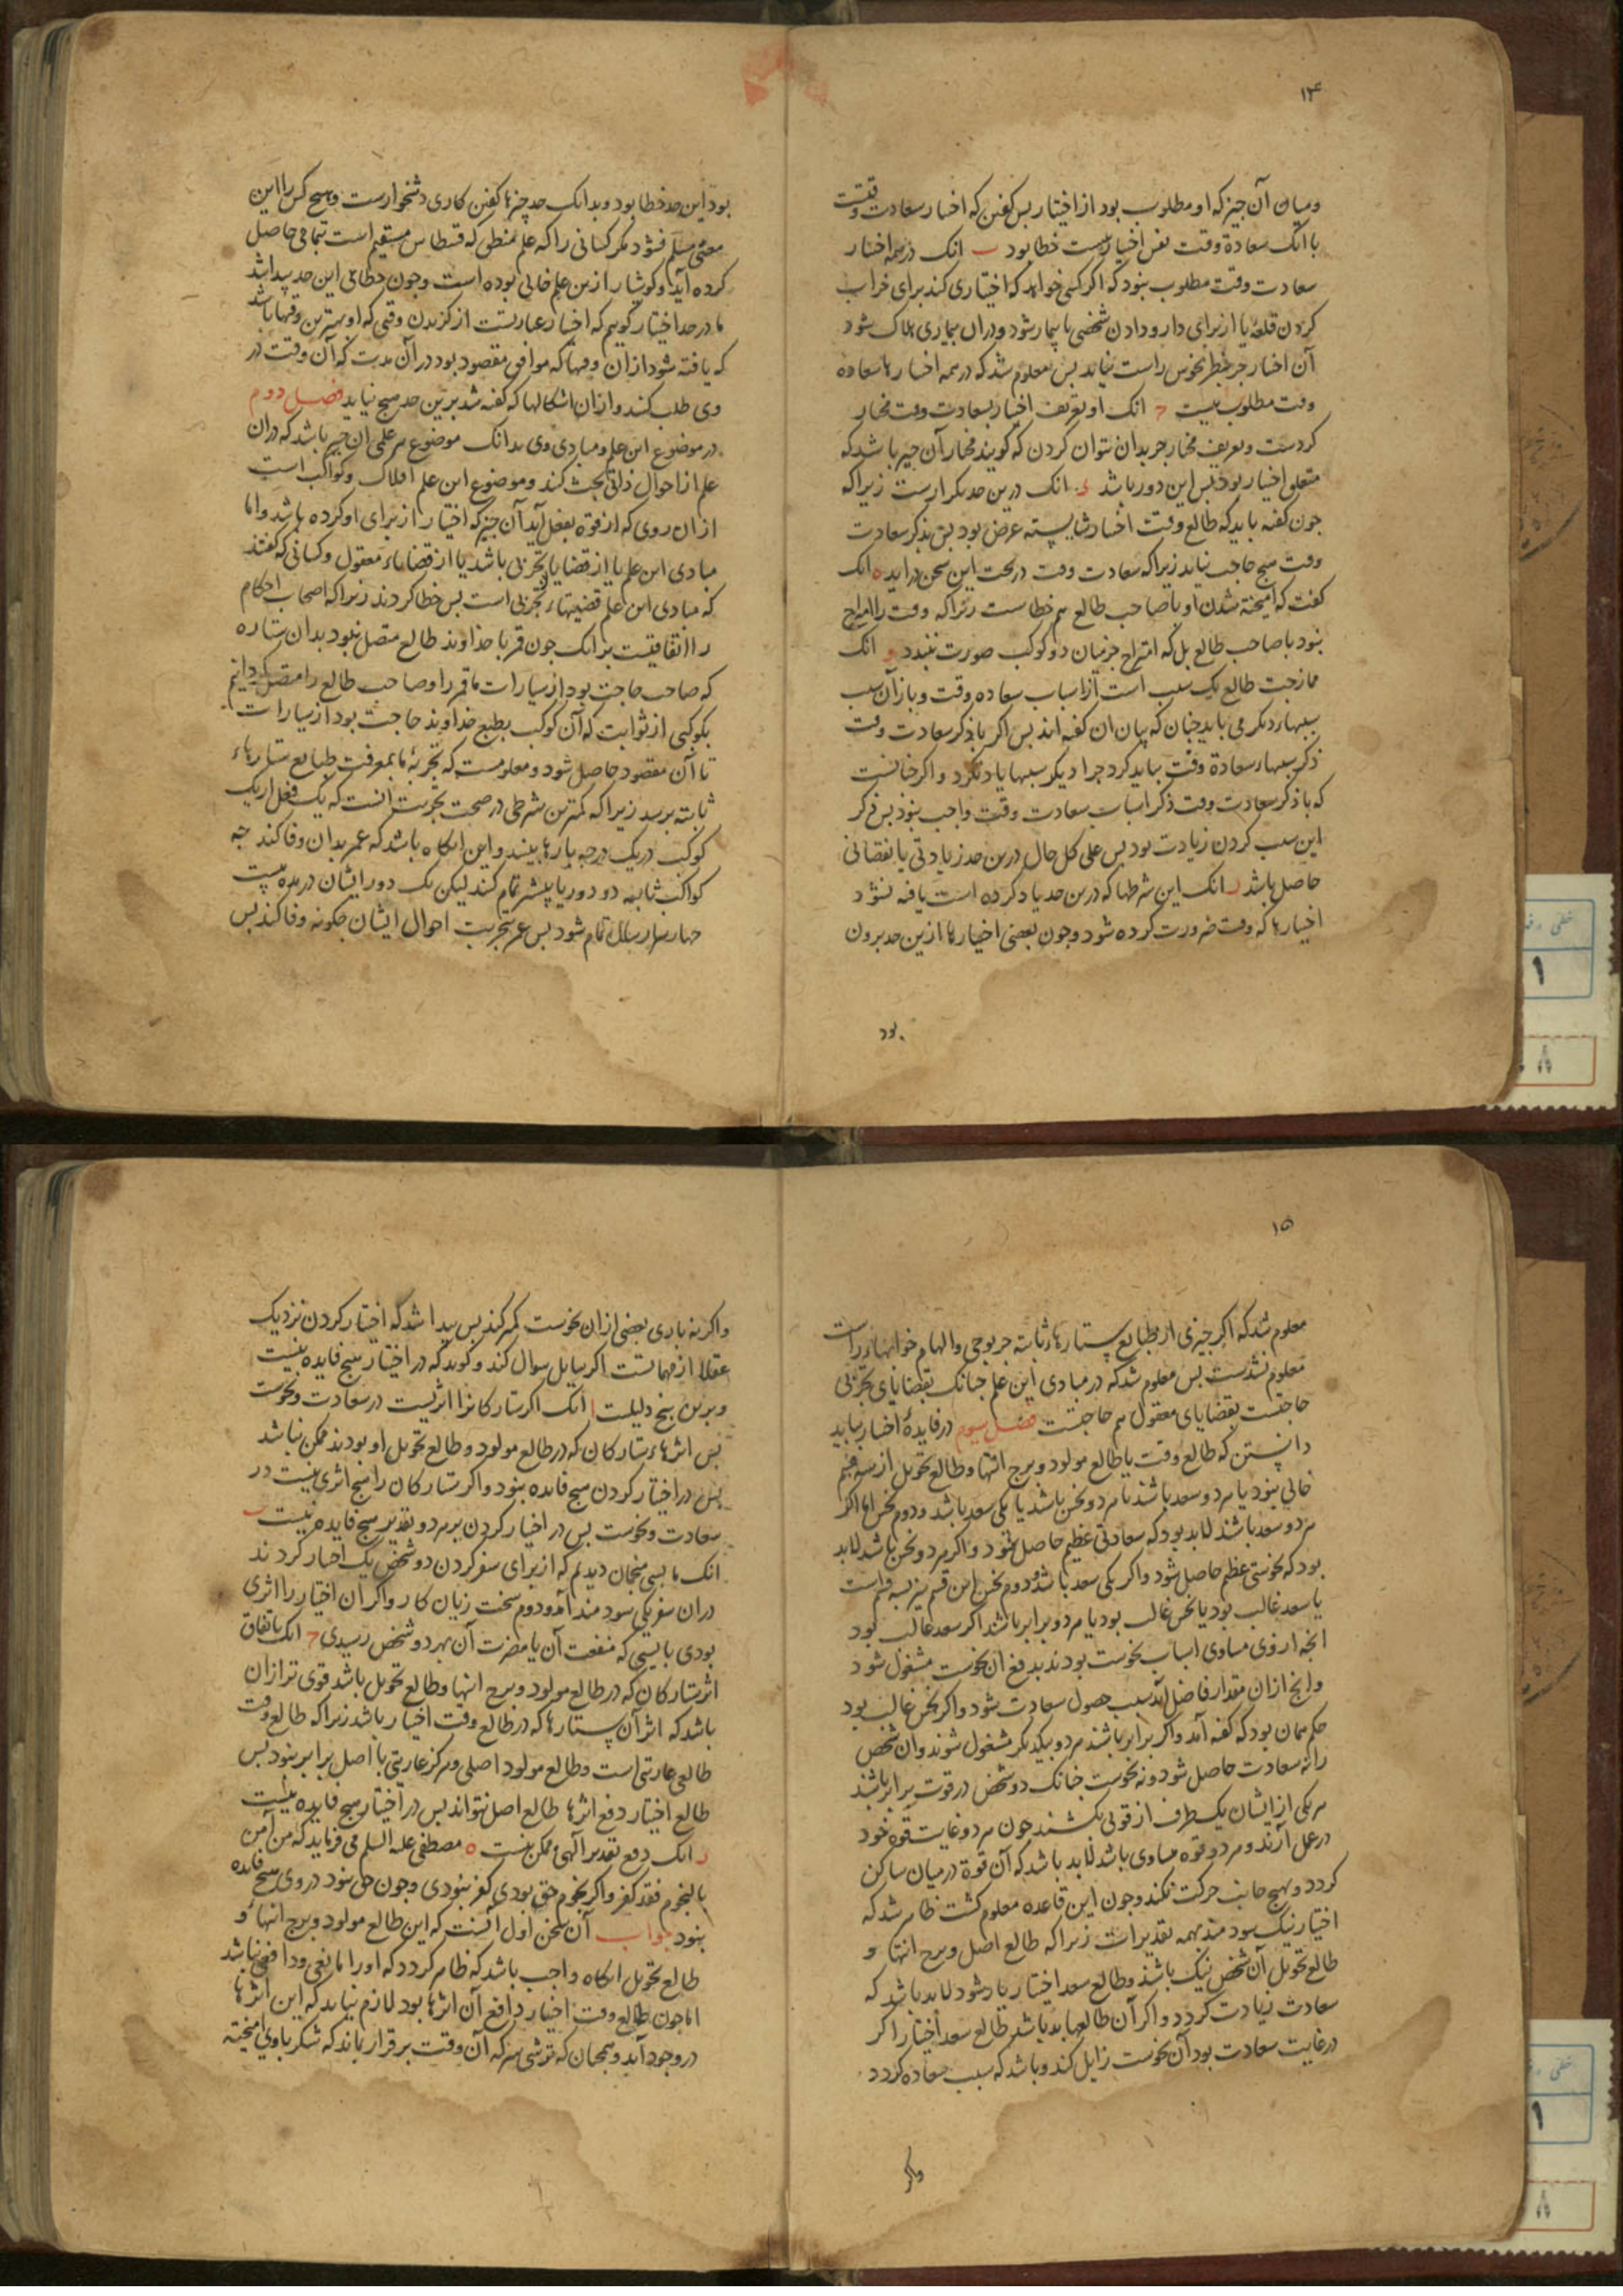 ۱۴
ومیان آن جیز که او مطلوب بود از اختیار بس کفتن که اختیار سعادت وقتست
با آنک سعادة وقت نفس اختیار نیست خطا بود ب انک در همه اختیار
سعادت وقت مطلوب نبود که اکر کسی خواهد که اختیاری کند برای خراب
کردن قلعهٔ یا از برای دارو دادن شخصی تا بیمار شود و در ان بیماری هلاک شود
آن اختیار جز بنظر نحوس راست نیاید بس معلوم شد که در همه اختیارها سعادة
وقت مطلوب نیست ح انک او تعریف اختیار بسعادت وقت مختار
کردست و تعریف مختار جز بدان نتوان کردن که کویند مختار آن جیز باشد که
متعلق اختیار بود بس این دور باشد د انک درین حد تکرارست زیرا که
جون کفته باید که طالع وقت اختیار شایسته غرض بود بس بذکر سعادت
وقت هیج حاجب نیاید زیرا که سعادت وقت در تحت این سخن در اید ه انک
کفت که امیخته شدن او با صاحب طالع هم خطاست زیرا که وقت را امتزاج
نبود با صاحب طالع بل که امتزاج جز میان دو کوکب صورت نبندد و انک
ممازجت طالع یک سبب است از اسباب سعاده وقت و باز آن سبب
سببهاء دیکر می باید جنان که بیان ان کفته اند بس اکر با ذکر سعادت وقت
ذکر سببهاء سعادة وقت بباید کرد جرا دیکر سببها یاد نکرد و اکر جنانست
که با ذکر سعادت وقت ذکر اسباب سعادت وقت واجب بنوذ بس ذکر
این سبب کردن زیادت بود بس علی کل حال درین حد زیادتی یا نقصانی
حاصل باشد ز انک این شرطها که درین حد یاد کرده است یافته نشود
اختیارها که وقت ضرورت کرده شود و جون بعضی اختیارها ازین حد برون
بود
بود این حد خطا بود و بدانک حد جیزها کفتن کاری دشخوارست و هیج کس را این
معنی مسلم نشود مکر کسانی را که علم منطق که قسطاس مستقیم است بتمامی حاصل
کرده آید و کوشیار ازین علم خالی بوده است و جون خطای این حد پیدا شد
ما در حد اختیار کویم که اختیار عبارتست از کزیدن وقتی که او بهترین وقتها باشد
که یافته شود ازان وقتها که موافق مقصود بود در آن مدت که آن وقت در
وی طلب کند و ازان اشکالها که کفته شد برین حد هیج نیاید فصل دوم
در موضوع این علم و مبادی وی بدانک موضوع هر علمی ان جیز باشد که در ان
علم از احوال ذاتی بحث کند و موضوع این علم افلاک و کواکب است
ازان روی که از قوة بفعل آید آن جیز که اختیار از برای او کرده باشد و اما
مبادی این علم یا از قضایا تجربی باشد یا از قضایاء معقول و کسانی که کفتند
که مبادی این علم قضیتهاء تجربی است بس خطا کردند زیرا که اصحاب احکام
را اتفاقیست بر انک جون قمر با خداوند طالع متصل نبود بدان ستاره
که صاحب حاجت بود از سیارات ما قمر را و صاحب طالع را متصل کردانیم
بکوکبی از ثوابت که آن کوکب بطبع خداوند حاجت بود از سیارات
تا آن مقصود حاصل شود و معلومست که تجربهٔ ما بمعرفت طبایع ستارهاء
ثابته برسد زیرا که کمترین شرطی در صحت تجربت آنست که یک فعل از یک
کوکب در یک درجه بارها بینند و این انکاه باشد که عمر بدان وفا کند جه
کواکب ثابته دو دور یا پیشتر تمام کند لیکن یک دور ایشان در مده بیست
جهار هزار سال تمام شود بس عمر بتجربت احوال ایشان جکونه وفا کند بس
۱۵
معلوم شد که اکر جیزی از طبایع ستارهاء ثابته جز بوحی و الهام خوابهاء راست
معلوم نشدست بس معلوم شد که در مبادی این علم جنانک بقضایای تجربی
حاجتست بقضایای معقول هم حاجتست فصل سیوم در فایدهٔ اختیار بباید
دانستن که طالع وقت یا طالع مولود و برج انتها و طالع تحویل از سه قسم
خالی نبود یا هر دو سعد باشد یا هر دو نحس باشد یا یکی سعد باشد و دوم نحس اما اکر
هر دو سعد باشد لابد بود که سعادتی عظیم حاصل شود و اکر هر دو نحس باشد لابد
بود که نحوستی عظیم حاصل شود و اکر یکی سعد باشد و دوم نحس این قسم نیز بسه قسم است
یا سعد غالب بود یا نحس غالب بود یا هر دو برابر باشد اکر سعد غالب بود
انجه از وی مساوی اسباب نحوست بود بدفع ان نحوست مشغول شود
و انج ازان مقدار فاضل آید سبب حصول سعادت شود و اکر نحس غالب بود
حکم همان بود که کفته آمد و اکر برابر باشند هر دو بیکدیکر مشغول شوند و ان شخص
را نه سعادت حاصل شود و نه نحوست جنانک دو شخص در قوت برابر باشند
هر یکی از ایشان یک طرف از قوتی بکشند جون هر دو غایت قوة خود
در عمل آرند و هر دو قوه مساوی باشد لابد باشد که آن قوة در میان ساکن
کردد و بهیج جانب حرکت نکند و جون این قاعده معلوم کشت ظاهر شد که
اختیار نیک سود مند بهمه تقدیرات زیرا که طالع اصل و برج انتها و
طالع تحویل آن شخص نیک باشد و طالع سعد اختیار یار شود لابد باشد که
سعادت زیادت کردد و اکر آن طالعها بد باشد طالع سعد اختیار اکر
در غایت سعادت بود آن نحوست زایل کند و باشد که سبب سعاده کردد
واکر
واکر نه باری بعضی ازان نحوست کمتر کند بس پیدا شد که اختیار کردن نزدیک
عقلا از مهماتست اکر سایل سوال کند و کوید که در اختیار هیج فایده نیست
و برین پنج دلیلست ا انک اکر ستارکانرا اثریست در سعادت و نحوست
بس اثرهاء ستارکان که در طالع مولود و طالع تحویل او بودند ممکن نباشد
بس در اختیار کردن هیج فایده نبود و اکر ستارکان را هیج اثری نیست در
سعادت و نحوست بس در اختیار کردن بر هر دو تقدیر هیج فایده نیست ب
انک ما بسی منجمان دیدیم که از برای سفر کردن دو شخص یک اختیار کردند
در ان سفر یکی سود مند آمد و دوم سخت زیان کار و اکر ان اختیار را اثری
بودی بایستی که منفعت آن یا مضرت آن بهر دو شخص رسیدی ح انک باتفاق
اثر ستارکان که در طالع مولود و برج انتها و طالع تحویل باشد قوی تر ازان
باشد که اثر آن ستارها که در طالع وقت اختیار باشد زیرا که طالع وقت
طالعی عاریتی است و طالع مولود اصلی و هرکز عاریتی با اصل برابر نبود بس
طالع اختیار دفع اثرها طالع اصل نتواند بس در اختیار هیج فایده نیست
د انک دفع تقدیر آلهی ممکن نیست ه مصطفی علیه السلم می فرماید که من آمن
بالنجوم فقد کفر و اکر نجوم حق بودی کفر نبودی و جون حق نبود در وی هیج فایده
نبود جواب آن سخن اول آنست که این طالع مولود و برج انتها و
طالع تحویل انکاه واجب باشد که ظاهر کردد که او را مانعی و دافعی نباشد
اما جون طالع وقت اختیار دافع آن اثرها بود لازم نیاید که این اثرها
در وجود آید و همجنان که ترشی سرکه آن وقت برقرار بماند که شکر با وی امیخته